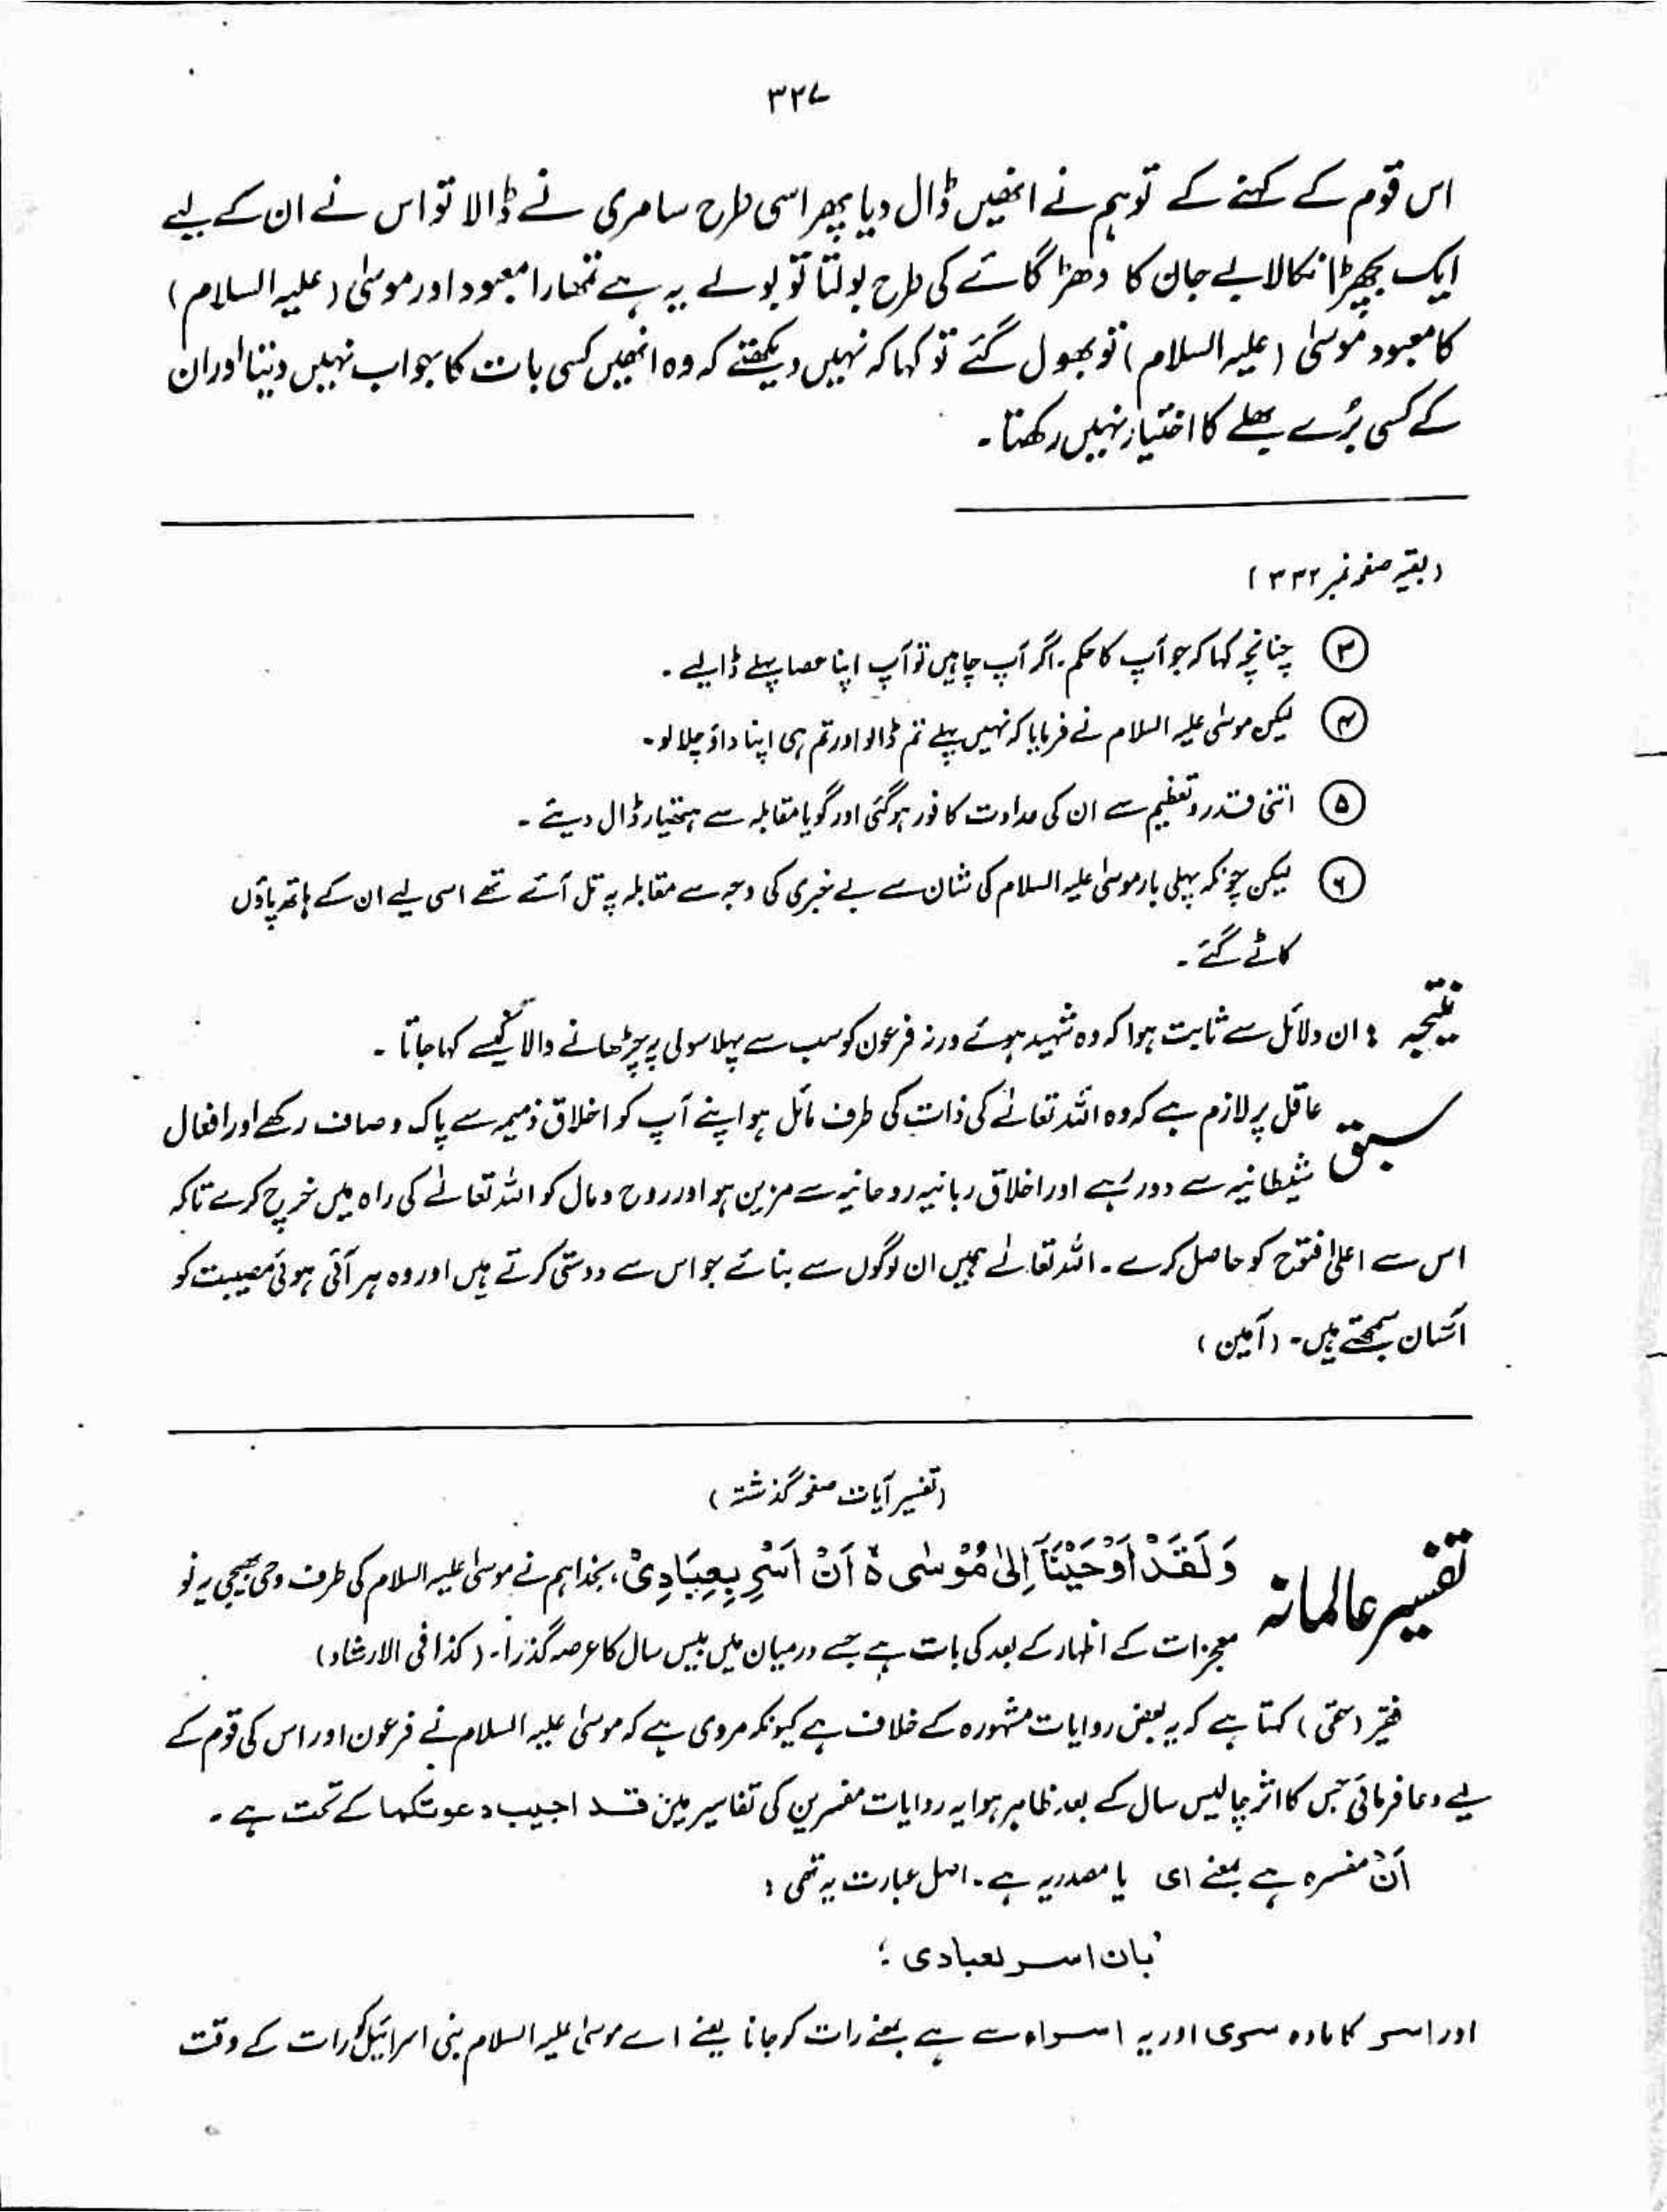 ۳۲۷
اس قوم کے کہنے کے تو ہم نے انھیں ڈال دیا پھر اسی طرح سامری نے ڈالا تو اس نے ان کے لیے
ایک بچھڑا نکالا بے جان کا دھڑ گائے کی طرح بولتا تو بولے یہ ہے تمھارا معبود اور موسٰی (علیہ السلام)
کا معبود موسٰی (علیہ السلام) تو بھول گئے تو کہا کہ نہیں دیکھتے کہ وہ انھیں کسی بات کا جواب نہیں دیتا اور ان
کے کسی بُرے بھلے کا اختیار نہیں رکھتا۔
(بقیہ صفحہ نمبر ۳۳۲)
③ چنانچہ کہا کہ جو آپ کا حکم۔ اگر آپ چاہیں تو آپ اپنا عصا پہلے ڈالیے۔
④ لیکن موسٰی علیہ السلام نے فرمایا کہ نہیں پہلے تم ڈالو اور تم ہی اپنا داؤ چلا لو۔
⑤ اتنی قدر و تعظیم سے ان کی عداوت کافور ہو گئی اور گویا مقابلہ سے ہتھیار ڈال دیئے۔
⑥ لیکن چونکہ پہلی بار موسٰی علیہ السلام کی شان سے بے خبری کی وجہ سے مقابلہ پہ تل آئے تھے اسی لیے ان کے ہاتھ پاؤں
کاٹے گئے۔
نتیجہ : ان دلائل سے ثابت ہوا کہ وہ شہید ہوئے ورنہ فرعون کو سب سے پہلا سولی پر چڑھانے والا کیسے کہا جاتا۔
سبق عاقل پر لازم ہے کہ وہ اللہ تعالٰے کی ذات کی طرف مائل ہو اپنے آپ کو اخلاق ذمیمہ سے پاک و صاف رکھے اور افعال
شیطانیہ سے دور رہے اور اخلاق ربانیہ روحانیہ سے مزین ہو اور روح و مال کو اللہ تعالٰے کی راہ میں خرچ کرے تاکہ
اس سے اعلیٰ فتوح کو حاصل کرے۔ اللہ تعالٰے ہمیں ان لوگوں سے بنائے جو اس سے دوستی کرتے ہیں اور وہ ہر آئی ہوئی مصیبت کو
آسان سمجھتے ہیں۔ (آمین)
(تفسیر آیات صفحہ گذشتہ)
تفسیر عالمانہ وَلَقَدْ اَوْحَیْنَآ اِلیٰ مُوْسٰی ہ اَنْ اَسْرِ بِعِبَادِیْ، بخدا ہم نے موسٰی علیہ السلام کی طرف وحی بھیجی یہ تو
معجزات کے اظہار کے بعد کی بات ہے جسے درمیان میں بیس سال کا عرصہ گذرا۔ (کذا فی الارشاد)
فقیر (حقی) کہتا ہے کہ یہ بعض روایات مشہورہ کے خلاف ہے کیونکہ مروی ہے کہ موسٰی علیہ السلام نے فرعون اور اس کی قوم کے
لیے دعا فرمائی جس کا اثر چالیس سال کے بعد ظاہر ہوا یہ روایات مفسرین کی تفاسیر میں قد اجیبت دعوتکما کے تحت ہے۔
اَنْ مفسرہ ہے بمعنے ای یا مصدریہ ہے۔ اصل عبارت یہ تھی :
بان اسر بعبادی ؛
اور اسر کا مادہ سری اور یہ اسراء سے ہے بمعنے رات کو جانا یعنے اے موسٰی علیہ السلام بنی اسرائیل کو رات کے وقت